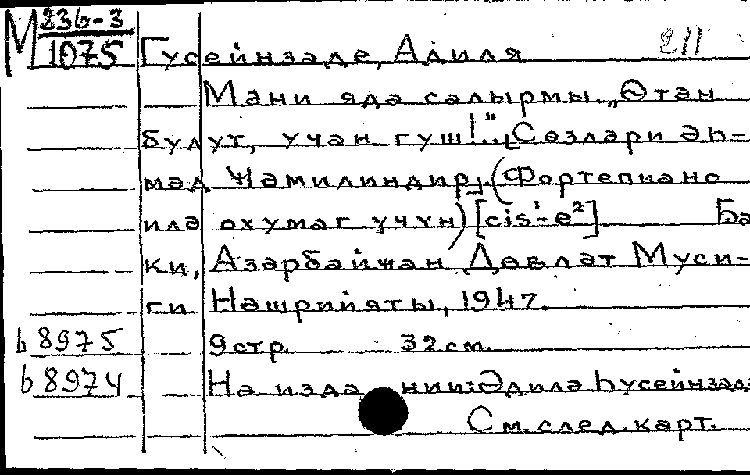 М 236-3
1075 Гусейнзаде, Адиля 211
Мəни јада салырмы „Өтəн
булут, учан гуш!" [Сөзлəри Əһ-
мəд Ҹəмилиндир] (Фортепиано
илə охумаг үчүн) [cis¹-e²] Ба-
ки, Азəрбайҹан Дəвлəт Муси-
ги Нəшрийяты, 1947.
b 8975 9 стр. 32 см.
b 8974 На изда нии: Əдилə Һусейнзадə
См. след. карт.